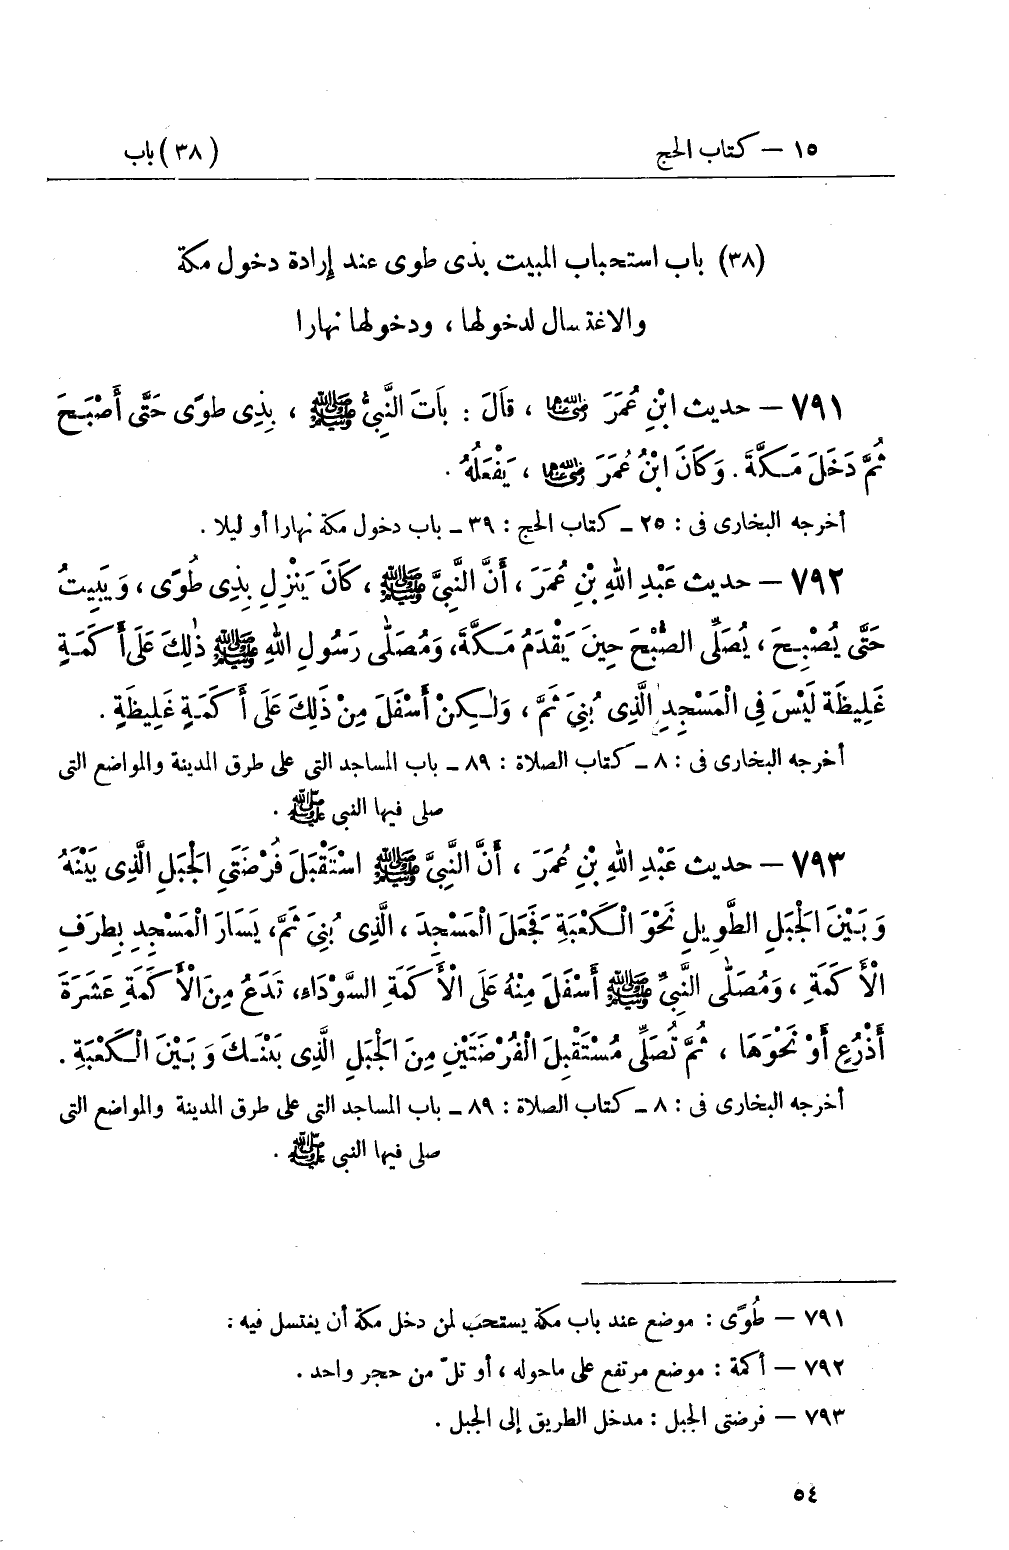 ١٥ – كتاب الحج (٣٨) باب
(٣٨) باب استحباب المبيت بذى طوى عند إرادة دخول مكة
والاغتسال لدخولها ، ودخولها نهارا
٧٩١ – حديث ابْنِ عُمَرَ رضي الله عنهما ، قَالَ : بَاتَ النَّبِيُّ ﷺ ، بِذِى طوًى حَتَّى أَصْبَحَ
ثُمَّ دَخَلَ مَكَّةَ . وَكَانَ ابْنُ عُمَرَ رضي الله عنهما ، يَفْعَلُهُ .
أخرجه البخارى فى : ٢٥ – كتاب الحج : ٣٩ – باب دخول مكة نهارا أو ليلا .
٧٩٢ – حديث عَبْدِ اللهِ بْنِ عُمَرَ ، أَنَّ النَّبِيَّ ﷺ ، كَانَ يَنْزِلِ بِذِى طُوًى ، وَيَبِيتُ
حَتَّى يُصْبِحَ ، يُصَلِّى الصُّبْحَ حِينَ يَقْدَمُ مَكَّةَ، وَمُصَلَّى رَسُولِ اللهِ ﷺ ذٰلِكَ عَلَى أَكَمَةٍ
غَلِيظَة لَيْسَ فِى الْمَسْجِدِ الَّذِى بُنِيَ ثَمَّ ، وَلٰكِنْ أَسْفَلَ مِنْ ذَلِكَ عَلَى أَكَمَةٍ غَلِيظَةٍ .
أخرجه البخارى فى : ٨ – كتاب الصلاة : ٨٩ – باب المساجد التى على طرق المدينة والمواضع التى
صلى فيها النبى ﷺ .
٧٩٣ – حديث عَبْدِ اللهِ بْنِ عُمَرَ ، أَنَّ النَّبِيَّ ﷺ اسْتَقْبَلَ فُرْضَتَىِ الْجَبَلِ الَّذِى بَيْنَهُ
وَبَيْنَ الْجَبَلِ الطَّوِيلِ نَحْوَ الْكَعْبَةِ فَجَعَلَ الْمَسْجِدَ ، الَّذِى بُنِيَ ثَمَّ، يَسَارَ الْمَسْجِدِ بِطَرَفِ
الْأَكَمَةِ ، وَمُصَلَّى النَّبِيِّ ﷺ أَسْفَلَ مِنْهُ عَلَى الْأَكَمَةِ السَّوْدَاءِ، تَدَعُ مِنَ الْأَكَمَةِ عَشَرَةَ
أَذْرُعٍ أَوْ نَحْوَهَا ، ثُمَّ تُصَلِّى مُسْتَقْبِلَ الْفُرْضَتَيْنِ مِنَ الْجَبَلِ الَّذِى بَيْنَكَ وَبَيْنَ الْكَعْبَةِ .
أخرجه البخارى فى : ٨ – كتاب الصلاة : ٨٩ – باب المساجد التى على طرق المدينة والمواضع التى
صلى فيها النبى ﷺ .
٧٩١ – طُوًى : موضع عند باب مكة يستحب لمن دخل مكة أن يغتسل فيه .
٧٩٢ – أكمة : موضع مرتفع على ماحوله ، أو تلّ من حجر واحد .
٧٩٣ – فرضتى الجبل : مدخل الطريق إلى الجبل .
٥٤